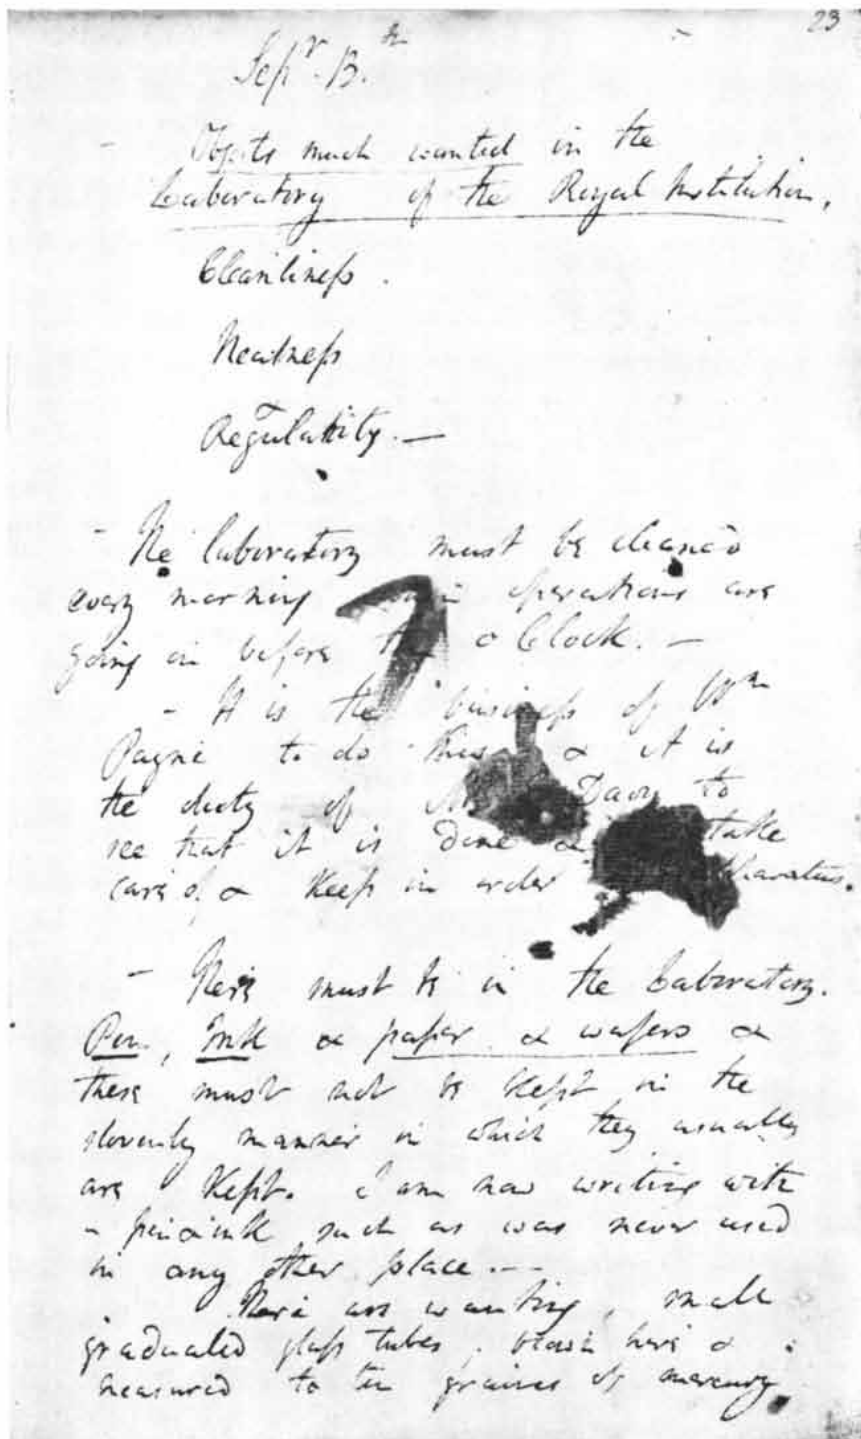 23
Sepr. 13th
- Objects much wanted in the
Laboratory of the Royal Institution.
Cleanliness.
Neatness
& Regularity. —
- The laboratory must be cleaned
every morning operations are
going on before o Clock. —
- It is the business of Wm
Payne to do this & it is
the duty of Davy to
see that it is done & take
care of & keep in order
- There must be in the Laboratory.
Pen, Ink & paper & wafers &
these must not be kept in the
slovenly manner in which they usually
are kept. I am now writing with
a pen & ink such as was never used
in any other place. —
There are wanting small
graduated glass tubes, blown here &
measured to ten grains of mercury